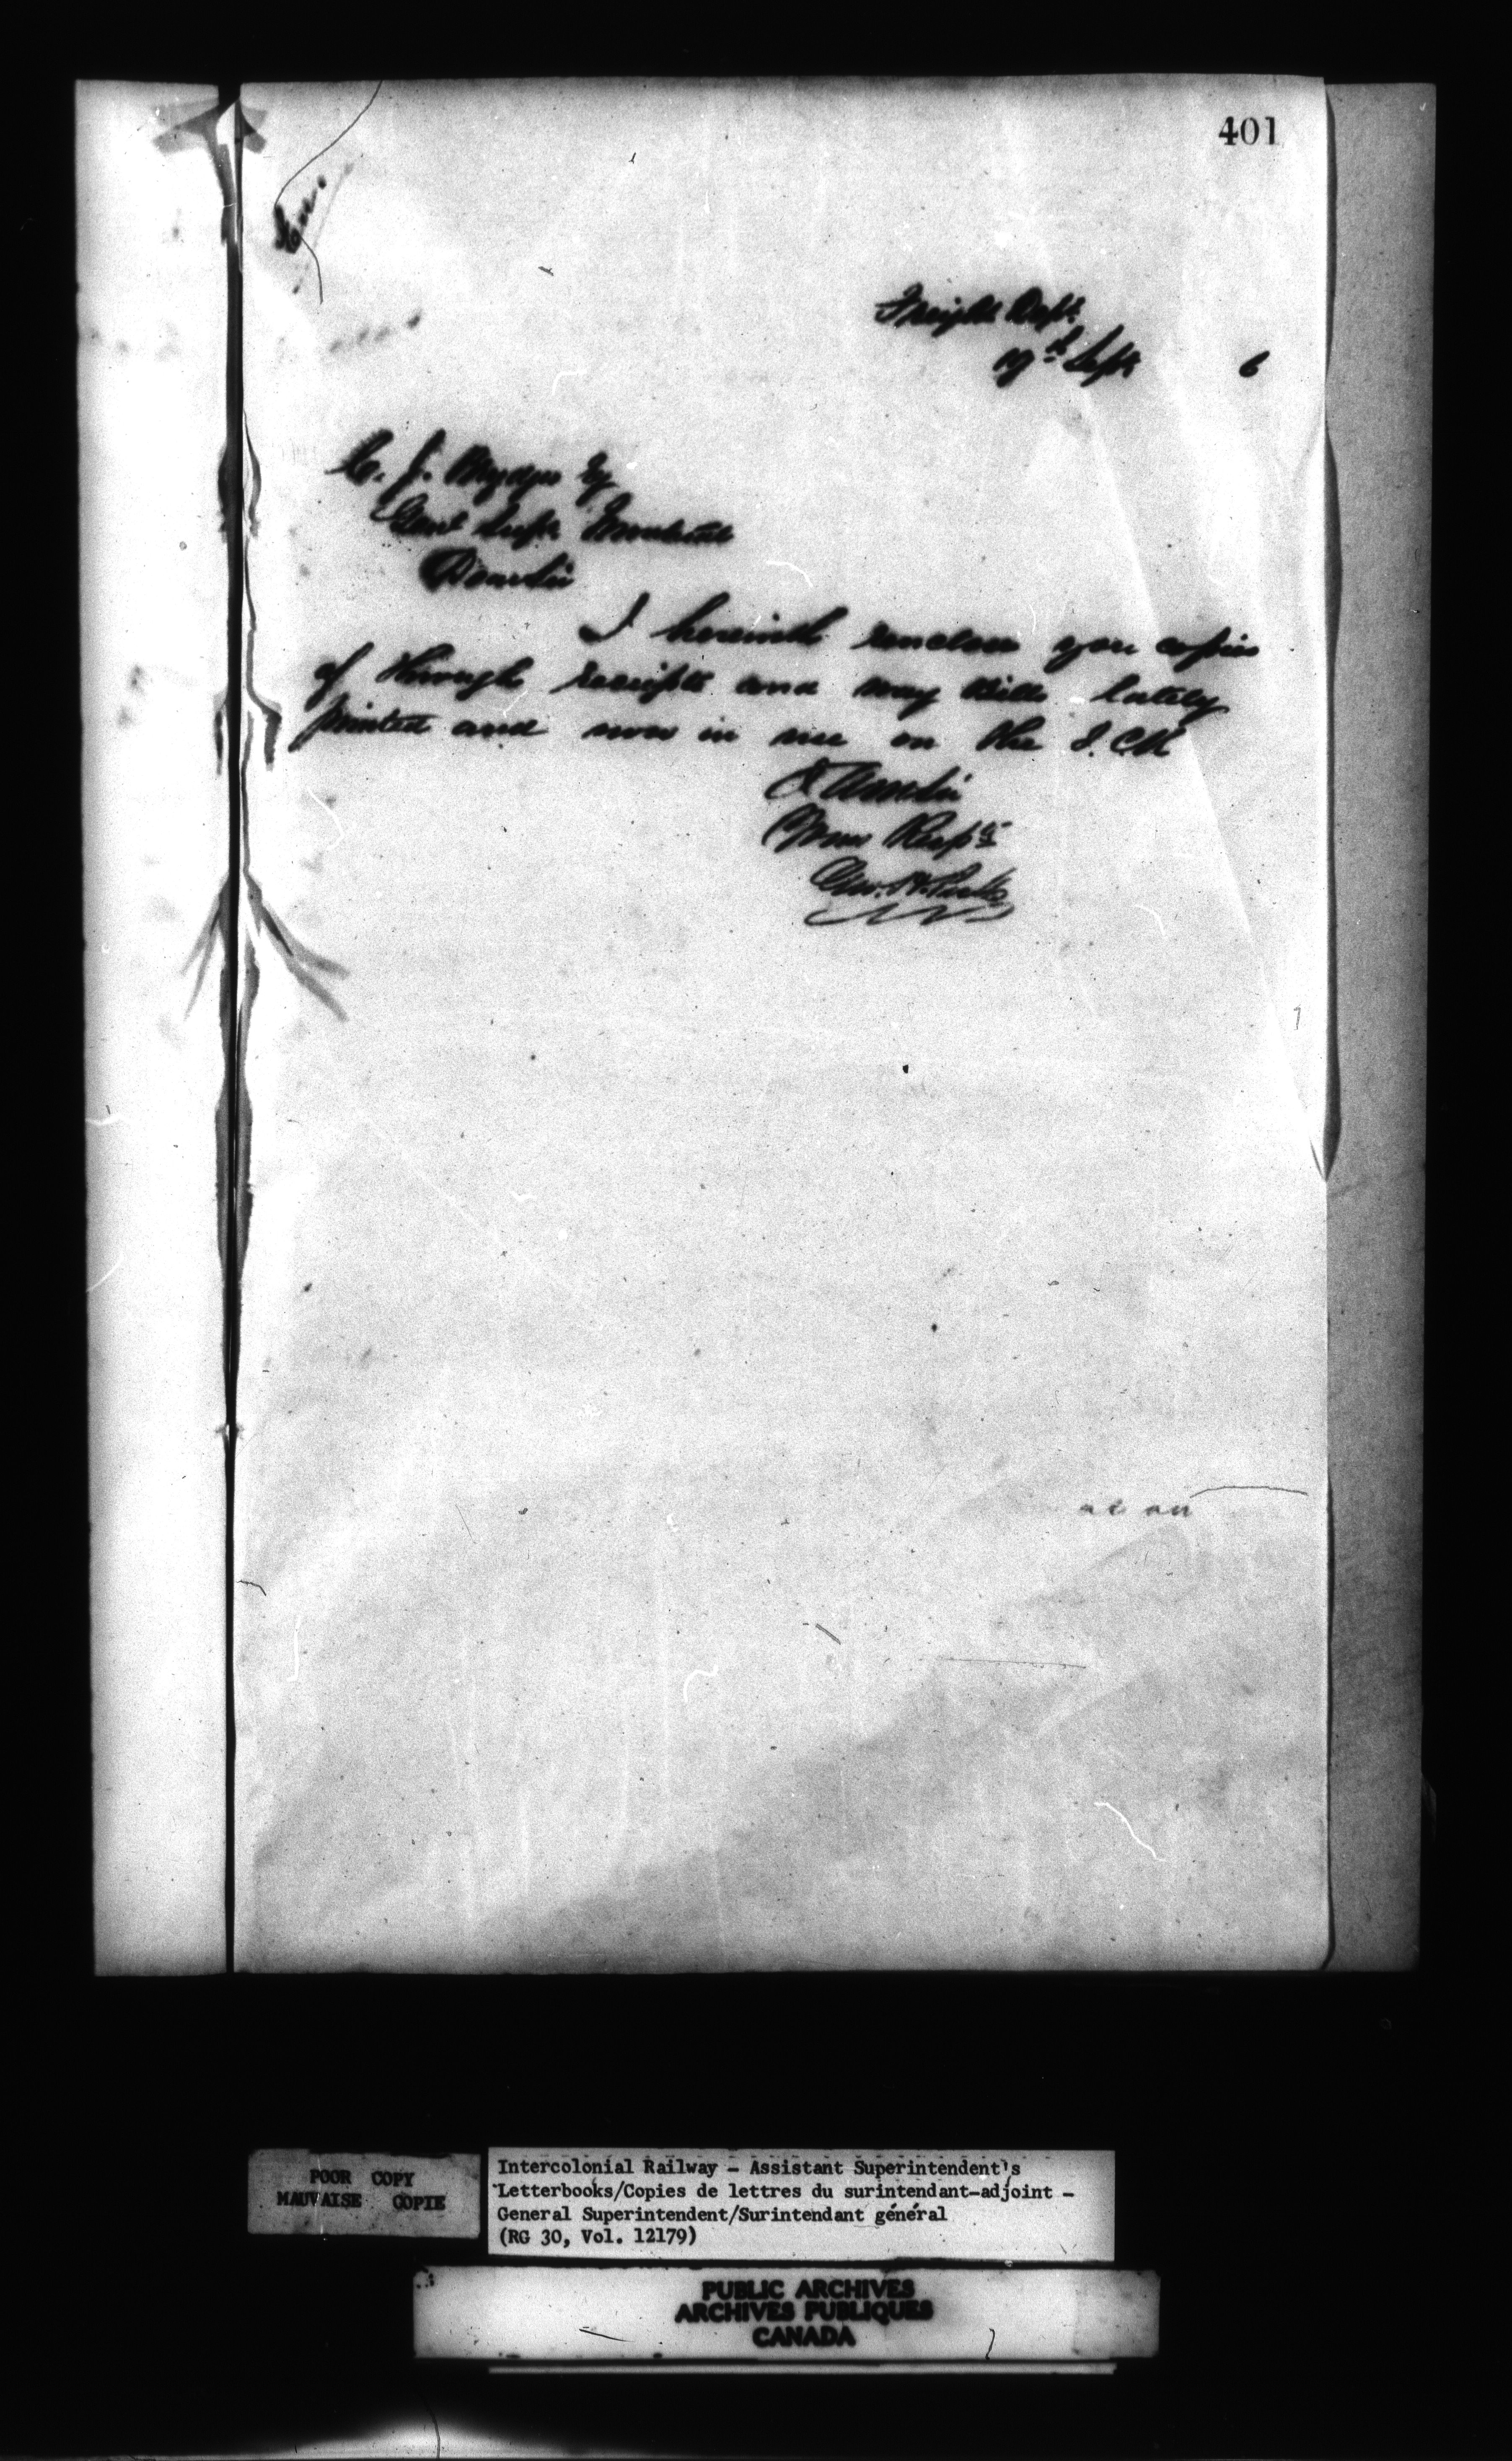 401
Freight Dept
19th Sept 6
C. J. Brydges Esq
Genl Supt Montreal
Dear Sir
I herewith enclose you copies
of through receipts and way bills lately
printed and now in use on the I.C.R
I am Sir
Your Respt
Geo.
POOR COPY
MAUVAISE COPIE
Intercolonial Railway - Assistant Superintendent's
Letterbooks/Copies de lettres du surintendant-adjoint -
General Superintendent/Surintendant général
(RG 30, Vol. 12179)
PUBLIC ARCHIVES
ARCHIVES PUBLIQUES
CANADA